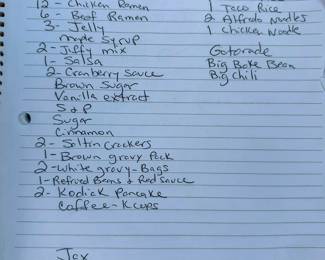 12 - Chicken Ramen
6 - Beef Ramen
3 - Jelly
maple Syrup
2 - Jiffy mix
1 - Salsa
2 - Cranberry Sauce
Brown Sugar
Vanilla extract
S & P
Sugar
Cinnamon
2 - Saltin Crackers
1 - Brown gravy Pack
2 - White gravy - Bags
1 - Refried Beans & Red Sauce
2 - Kodick Pancake
Coffee - K cups
Jax
1 Taco Rice
2 Alfredo Noodles
1 Chicken Noodle
Gatorade
Big Bake Bean
Big Chili